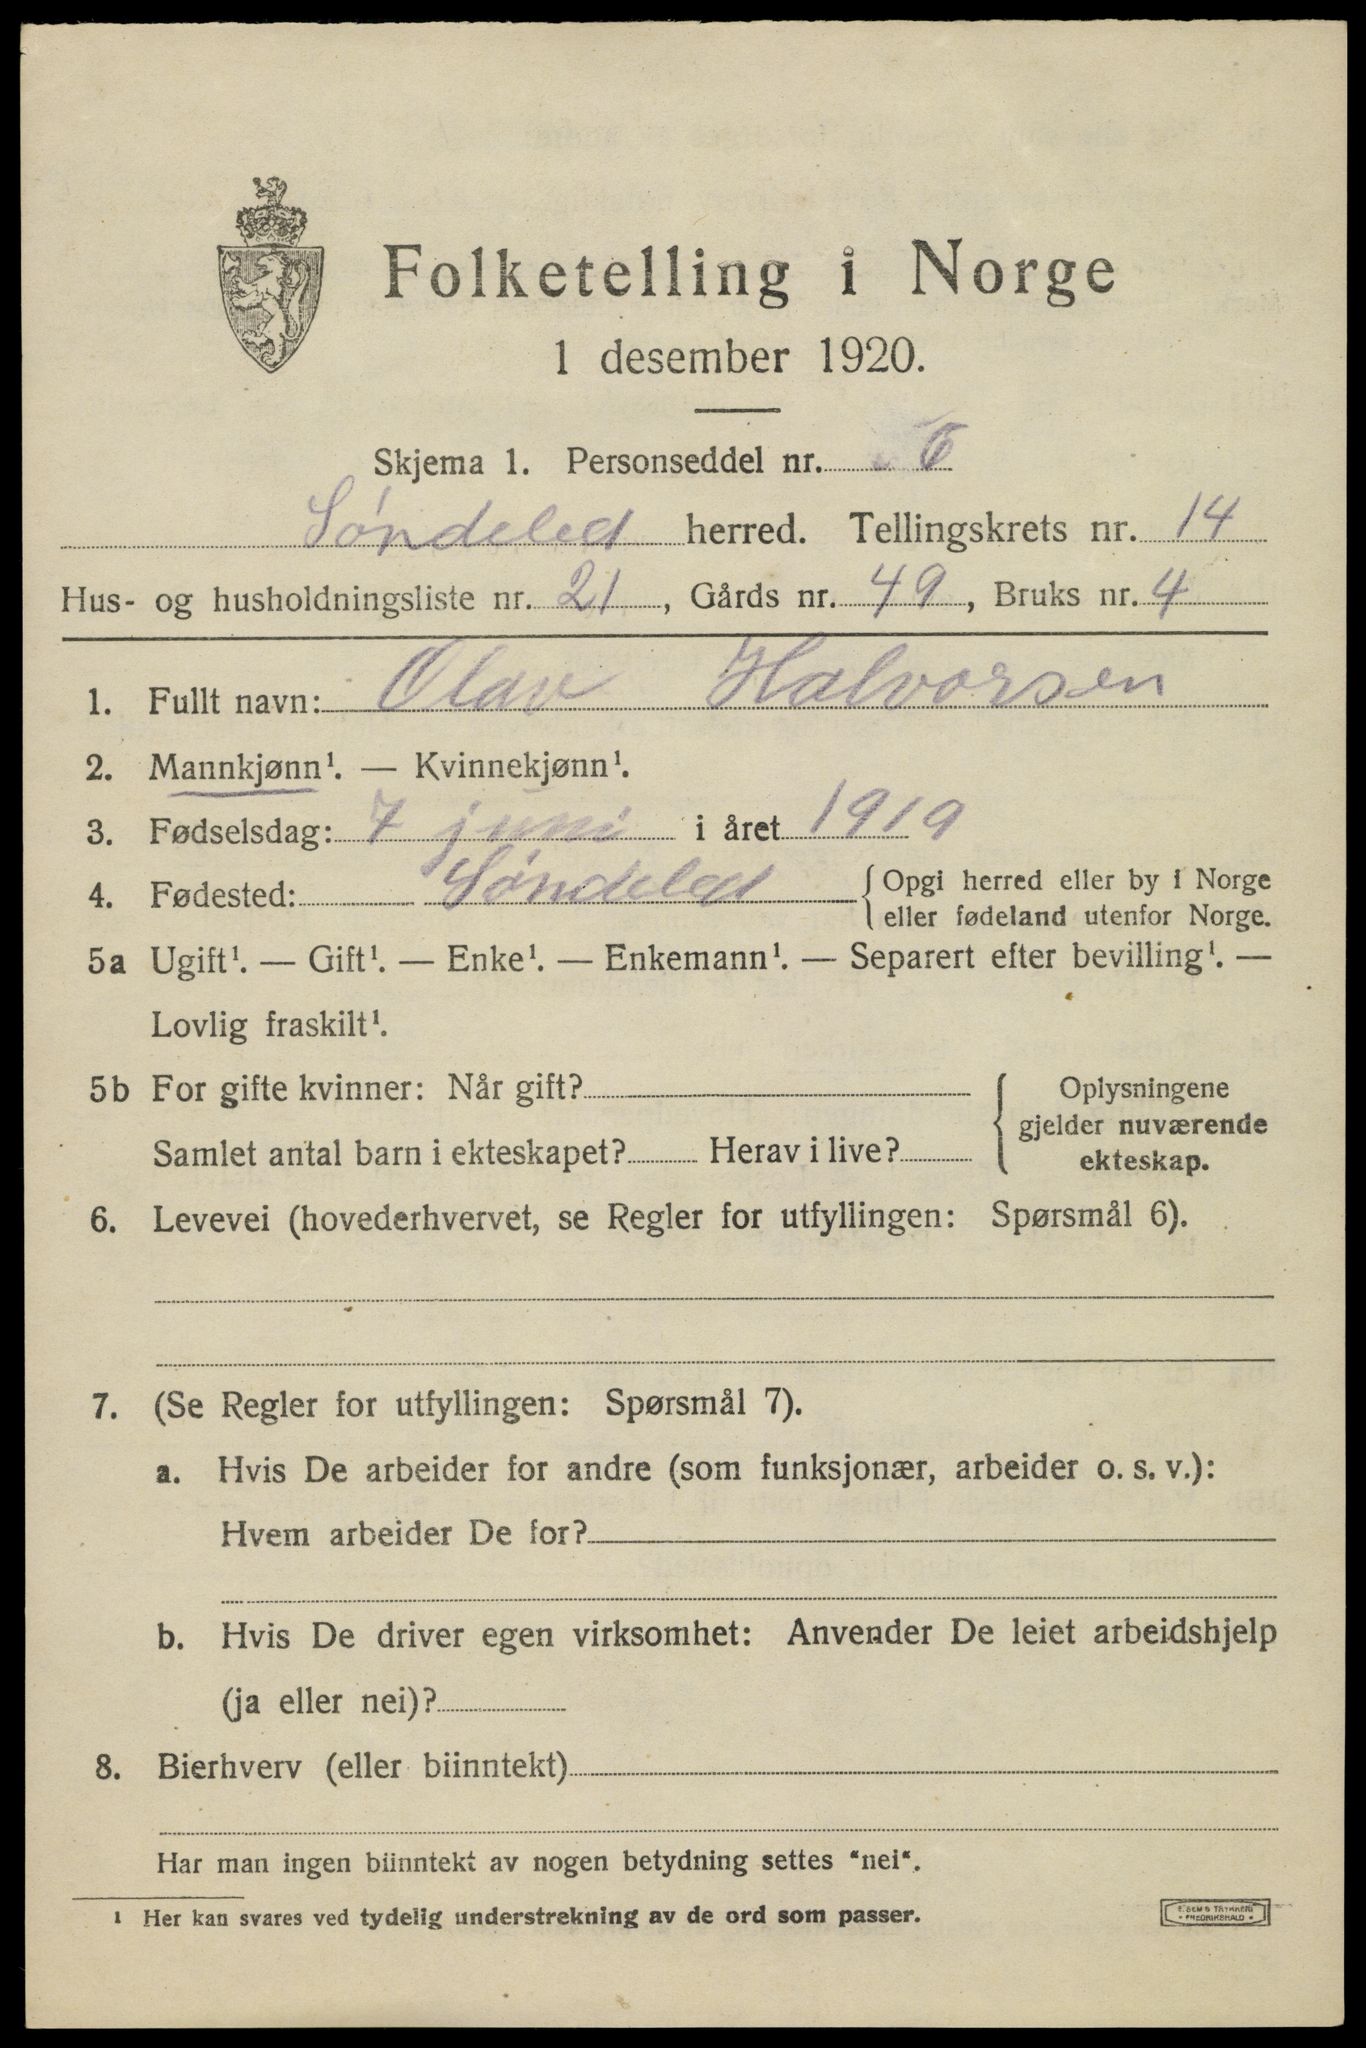 Folketelling i Norge
1 desember 1920.
Skjema 1. Personseddel nr. 6
Søndeled herred. Tellingskrets nr. 14
Hus- og husholdningsliste nr. 21, Gårds nr. 49, Bruks nr. 4
1. Fullt navn: Olav Halvorsen
2. Mannkjønn¹. — Kvinnekjønn¹.
3. Fødselsdag: 7 juni i året 1919
4. Fødested: Søndeled { Opgi herred eller by i Norge
eller fødeland utenfor Norge.
5a Ugift¹. — Gift¹. — Enke¹. — Enkemann¹. — Separert efter bevilling¹. —
Lovlig fraskilt¹.
5b For gifte kvinner: Når gift?
Samlet antal barn i ekteskapet? Herav i live?
Oplysningene
gjelder nuværende
ekteskap.
6. Levevei (hovederhvervet, se Regler for utfyllingen: Spørsmål 6).
7. (Se Regler for utfyllingen: Spørsmål 7).
a. Hvis De arbeider for andre (som funksjonær, arbeider o. s. v.):
Hvem arbeider De for?
b. Hvis De driver egen virksomhet: Anvender De leiet arbeidshjelp
(ja eller nei)?
8. Bierhverv (eller biinntekt)
Har man ingen biinntekt av nogen betydning settes "nei".
¹ Her kan svares ved tydelig understrekning av de ord som passer.
E. SEM'S TRYKKERI
• FREDRIKSHALD •